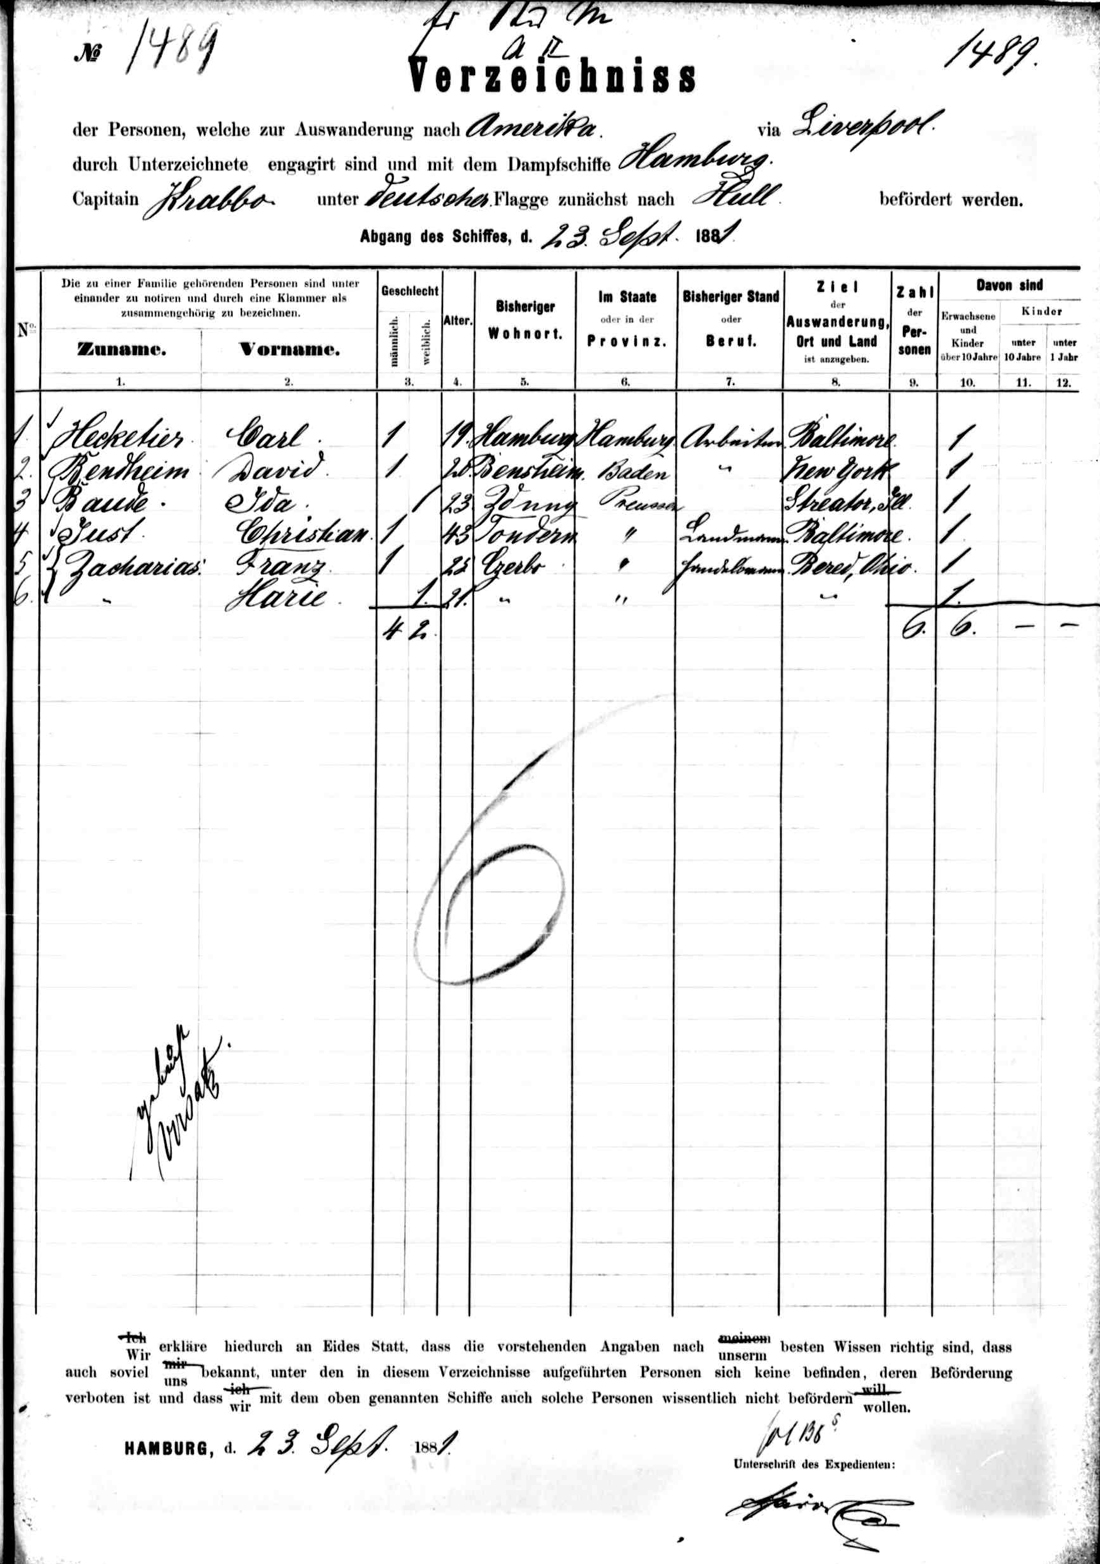 № 1489 1489.
a II
Verzeichniss
der Personen, welche zur Auswanderung nach Amerika. via Liverpool.
durch Unterzeichnete engagirt sind und mit dem Dampfschiffe Hamburg.
Capitain Krabbo unter Deutscher Flagge zunächst nach Hull. befördert werden.
Abgang des Schiffes, d. 23. Sept. 1881.
No. Die zu einer Familie gehörenden Personen sind unter einander zu notiren und durch eine Klammer als zusammengehörig zu bezeichnen. Zuname. Vorname. Geschlecht männlich. weiblich. Alter. Bisheriger Wohnort. Im Staate oder in der Provinz. Bisheriger Stand oder Beruf. Ziel der Auswanderung, Ort und Land ist anzugeben. Zahl der Personen Davon sind Erwachsene und Kinder über 10 Jahre Kinder unter 10 Jahre unter 1 Jahr
1. 2. 3. 4. 5. 6. 7. 8. 9. 10. 11. 12.
1. Hecketier Carl. 1 19. Hamburg Hamburg. Arbeiter Baltimore 1
2. Bendheim David. 1 Bensheim. Baden " New York 1
3 Baude. Ida. 1 23. Zduny Preussen Streator, Ill. 1
4 Just. Christian. 1 43 Tondern " Landmann Baltimore. 1
5 Zacharias. Franz. 1 25 Czerbo " Handelsmann. Bered, Ohio. 1
6. " Marie. 1. 21. " " " 1.
4 2. 6. 6. — —
6
Ich
Wir erkläre hiedurch an Eides Statt, dass die vorstehenden Angaben nach meinem unserm besten Wissen richtig sind, dass
auch soviel mir uns bekannt, unter den in diesem Verzeichnisse aufgeführten Personen sich keine befinden, deren Beförderung
verboten ist und dass ich wir mit dem oben genannten Schiffe auch solche Personen wissentlich nicht befördern will wollen.
HAMBURG, d. 23. Sept. 1881.
Unterschrift des Expedienten: